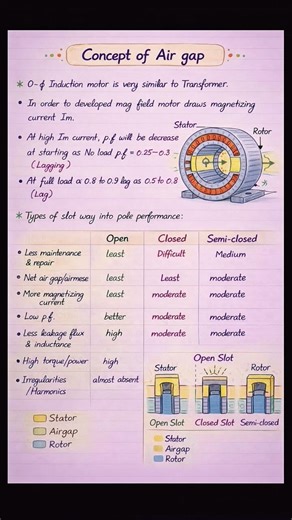 Concept of Air gap
* 0-ϕ Induction motor is very similar to Transformer.
* In order to developed mag field motor draws magnetizing
current Im.
• At high Im current, p.f will be decrease
at starting as No load p.f = 0.25-0.3
(Lagging)
• At full load α 0.8 to 0.9 lag as 0.5 to 0.8
(Lag)
Stator
Rotor
* Types of slot way into pole performance:
Open Closed Semi-closed
• Less maintenance
& repair least Difficult Medium
• Net air gap/airmese least Least moderate
• More magnetizing
current least moderate moderate
• Low p.f. better moderate moderate
• Less leakage flux
& inductance high moderate moderate
• High torque/power high
• Irregularities
/Harmonics almost absent
Open Slot
Stator Rotor
Open Slot Closed Slot Semi-closed
Stator
Airgap
Rotor
Stator
Airgap
Rotor